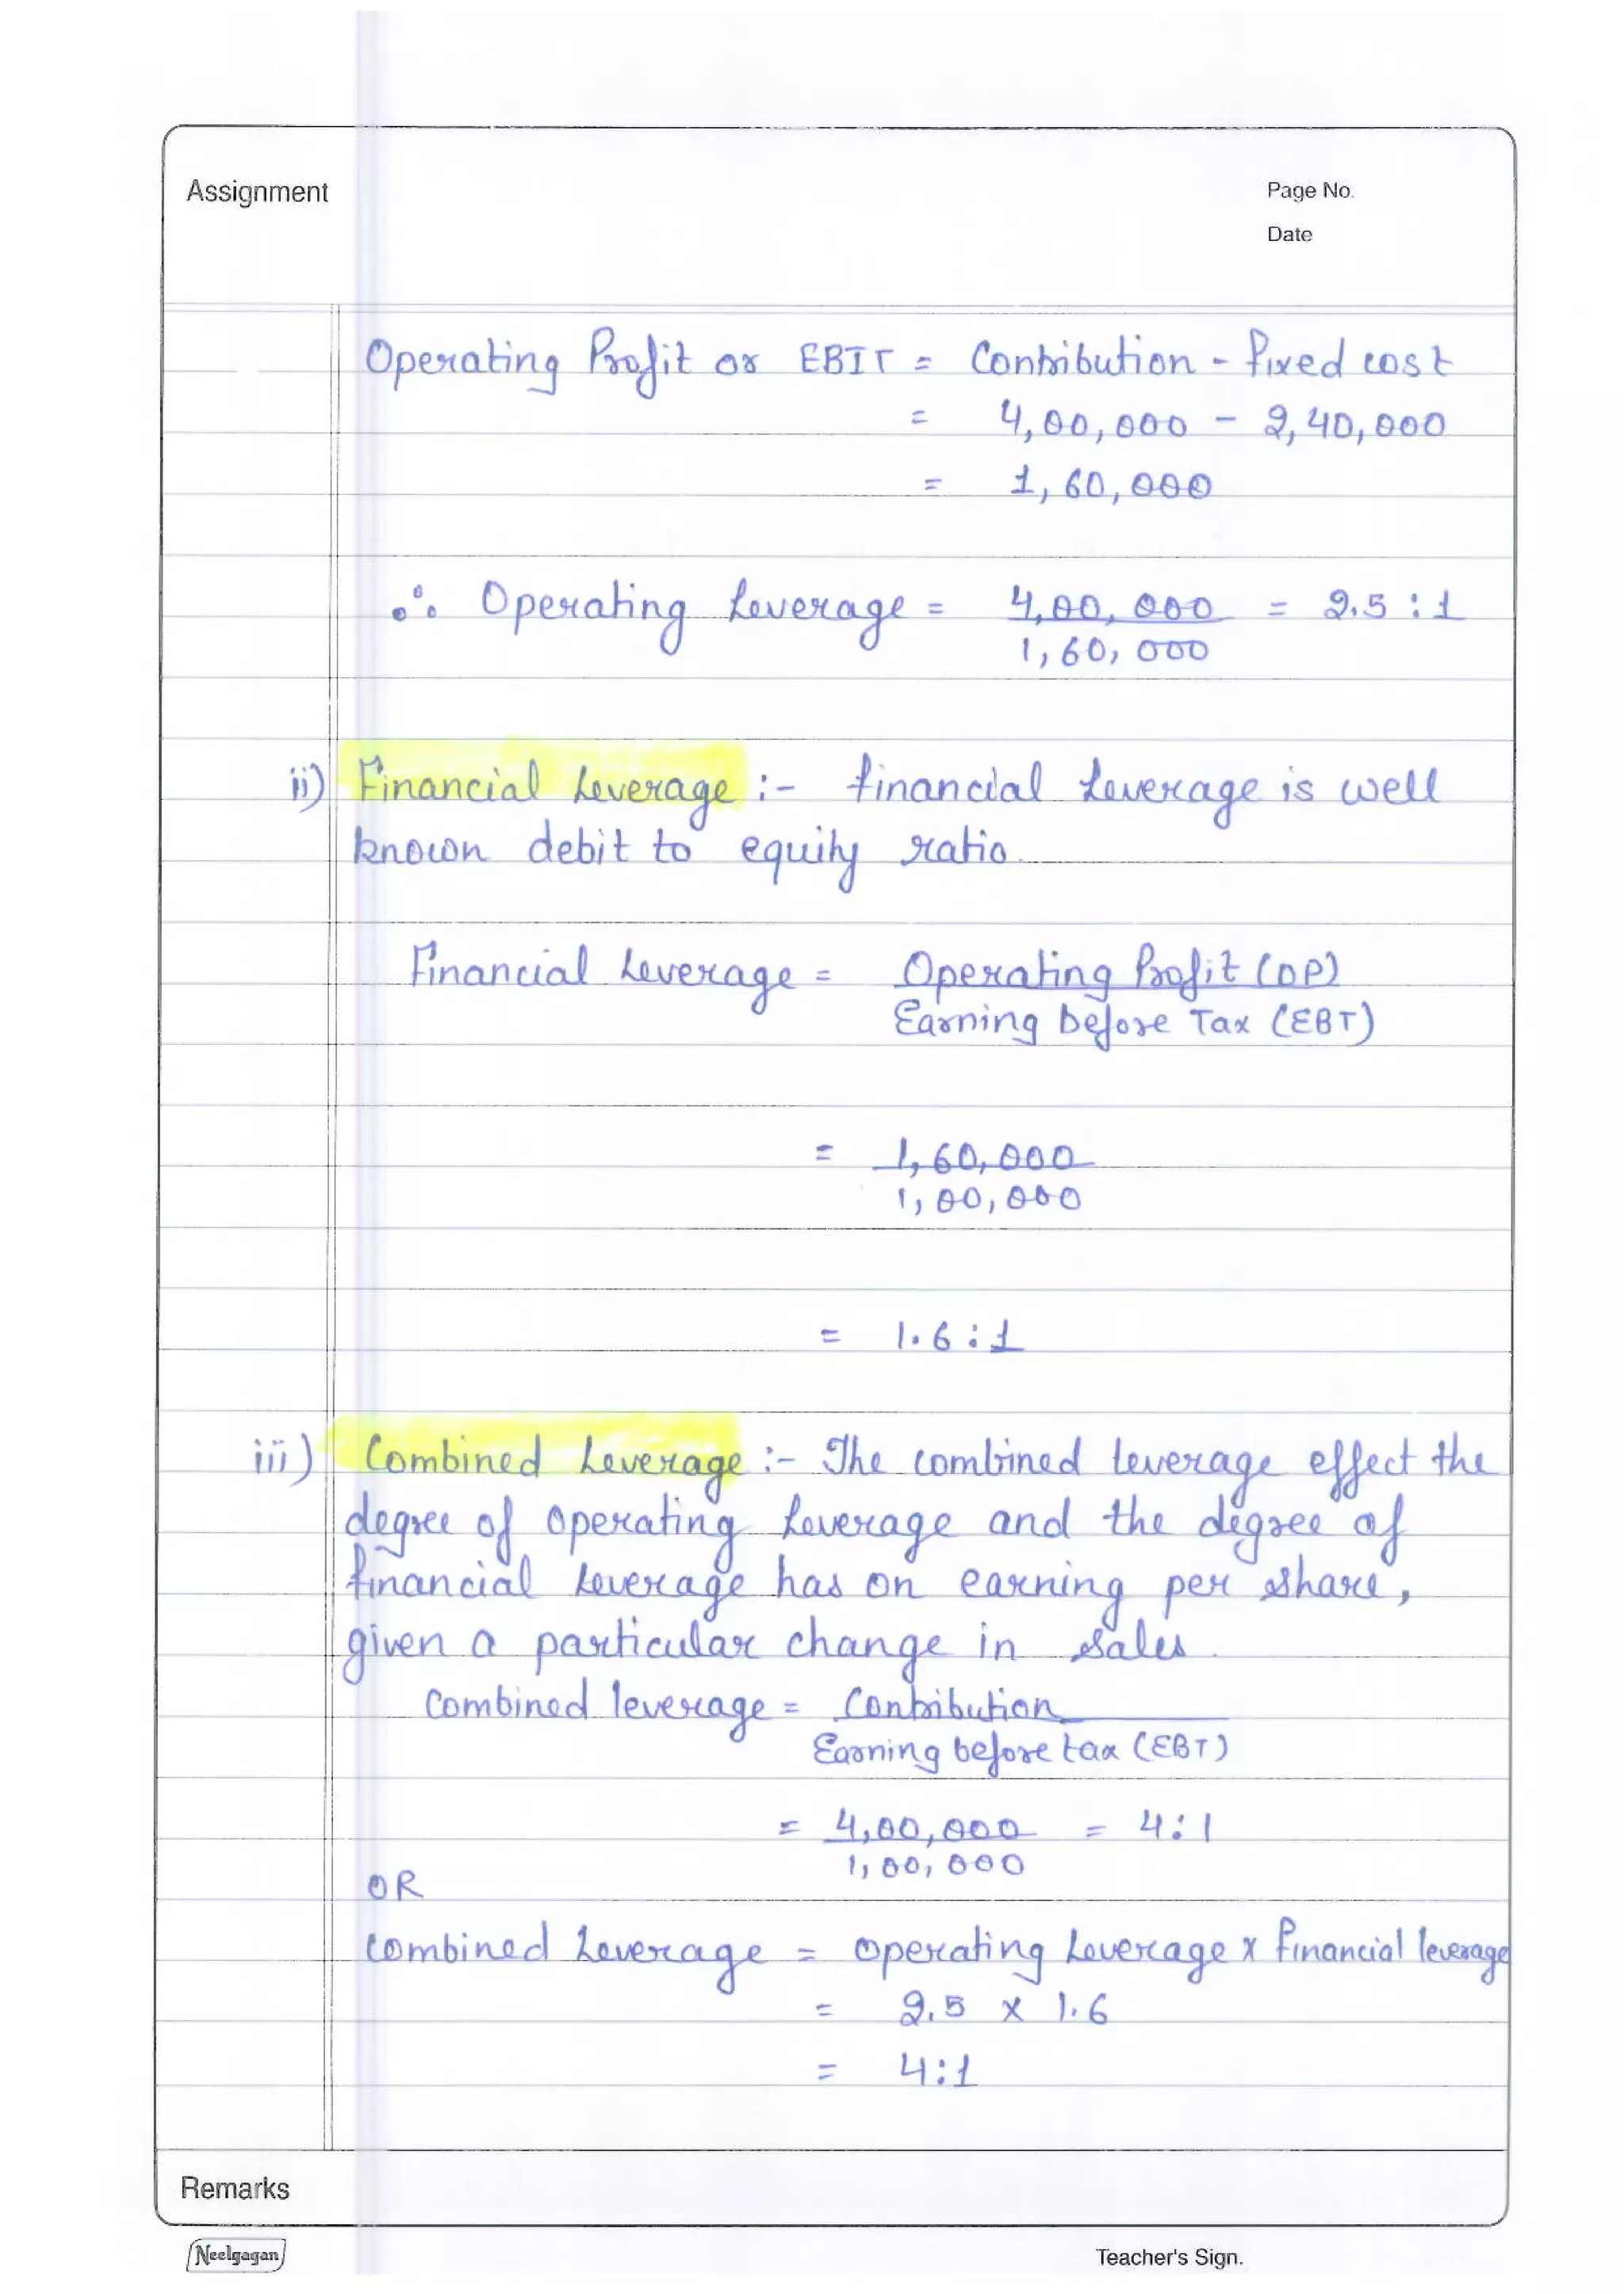 Assignment
Page No.
Date
Operating Profit or EBIT = Contribution - Fixed cost
= 4,00,000 - 2,40,000
= 1,60,000
∴ Operating Leverage = 4,00,000 = 2.5 : 1
1,60,000
ii) Financial Leverage :- financial Leverage is well
known debit to equity ratio.
Financial Leverage = Operating Profit (OP)
Earning before Tax (EBT)
= 1,60,000
1,00,000
= 1.6 : 1
iii) Combined Leverage :- The combined leverage effect the
degree of operating Leverage and the degree of
financial Leverage has on earning per share,
given a particular change in sales.
Combined leverage = Contribution
Earning before tax (EBT)
= 4,00,000 = 4 : 1
1,00,000
OR
Combined Leverage = operating Leverage x Financial leverage
= 2.5 x 1.6
= 4 : 1
Remarks
Neelgagan
Teacher's Sign.